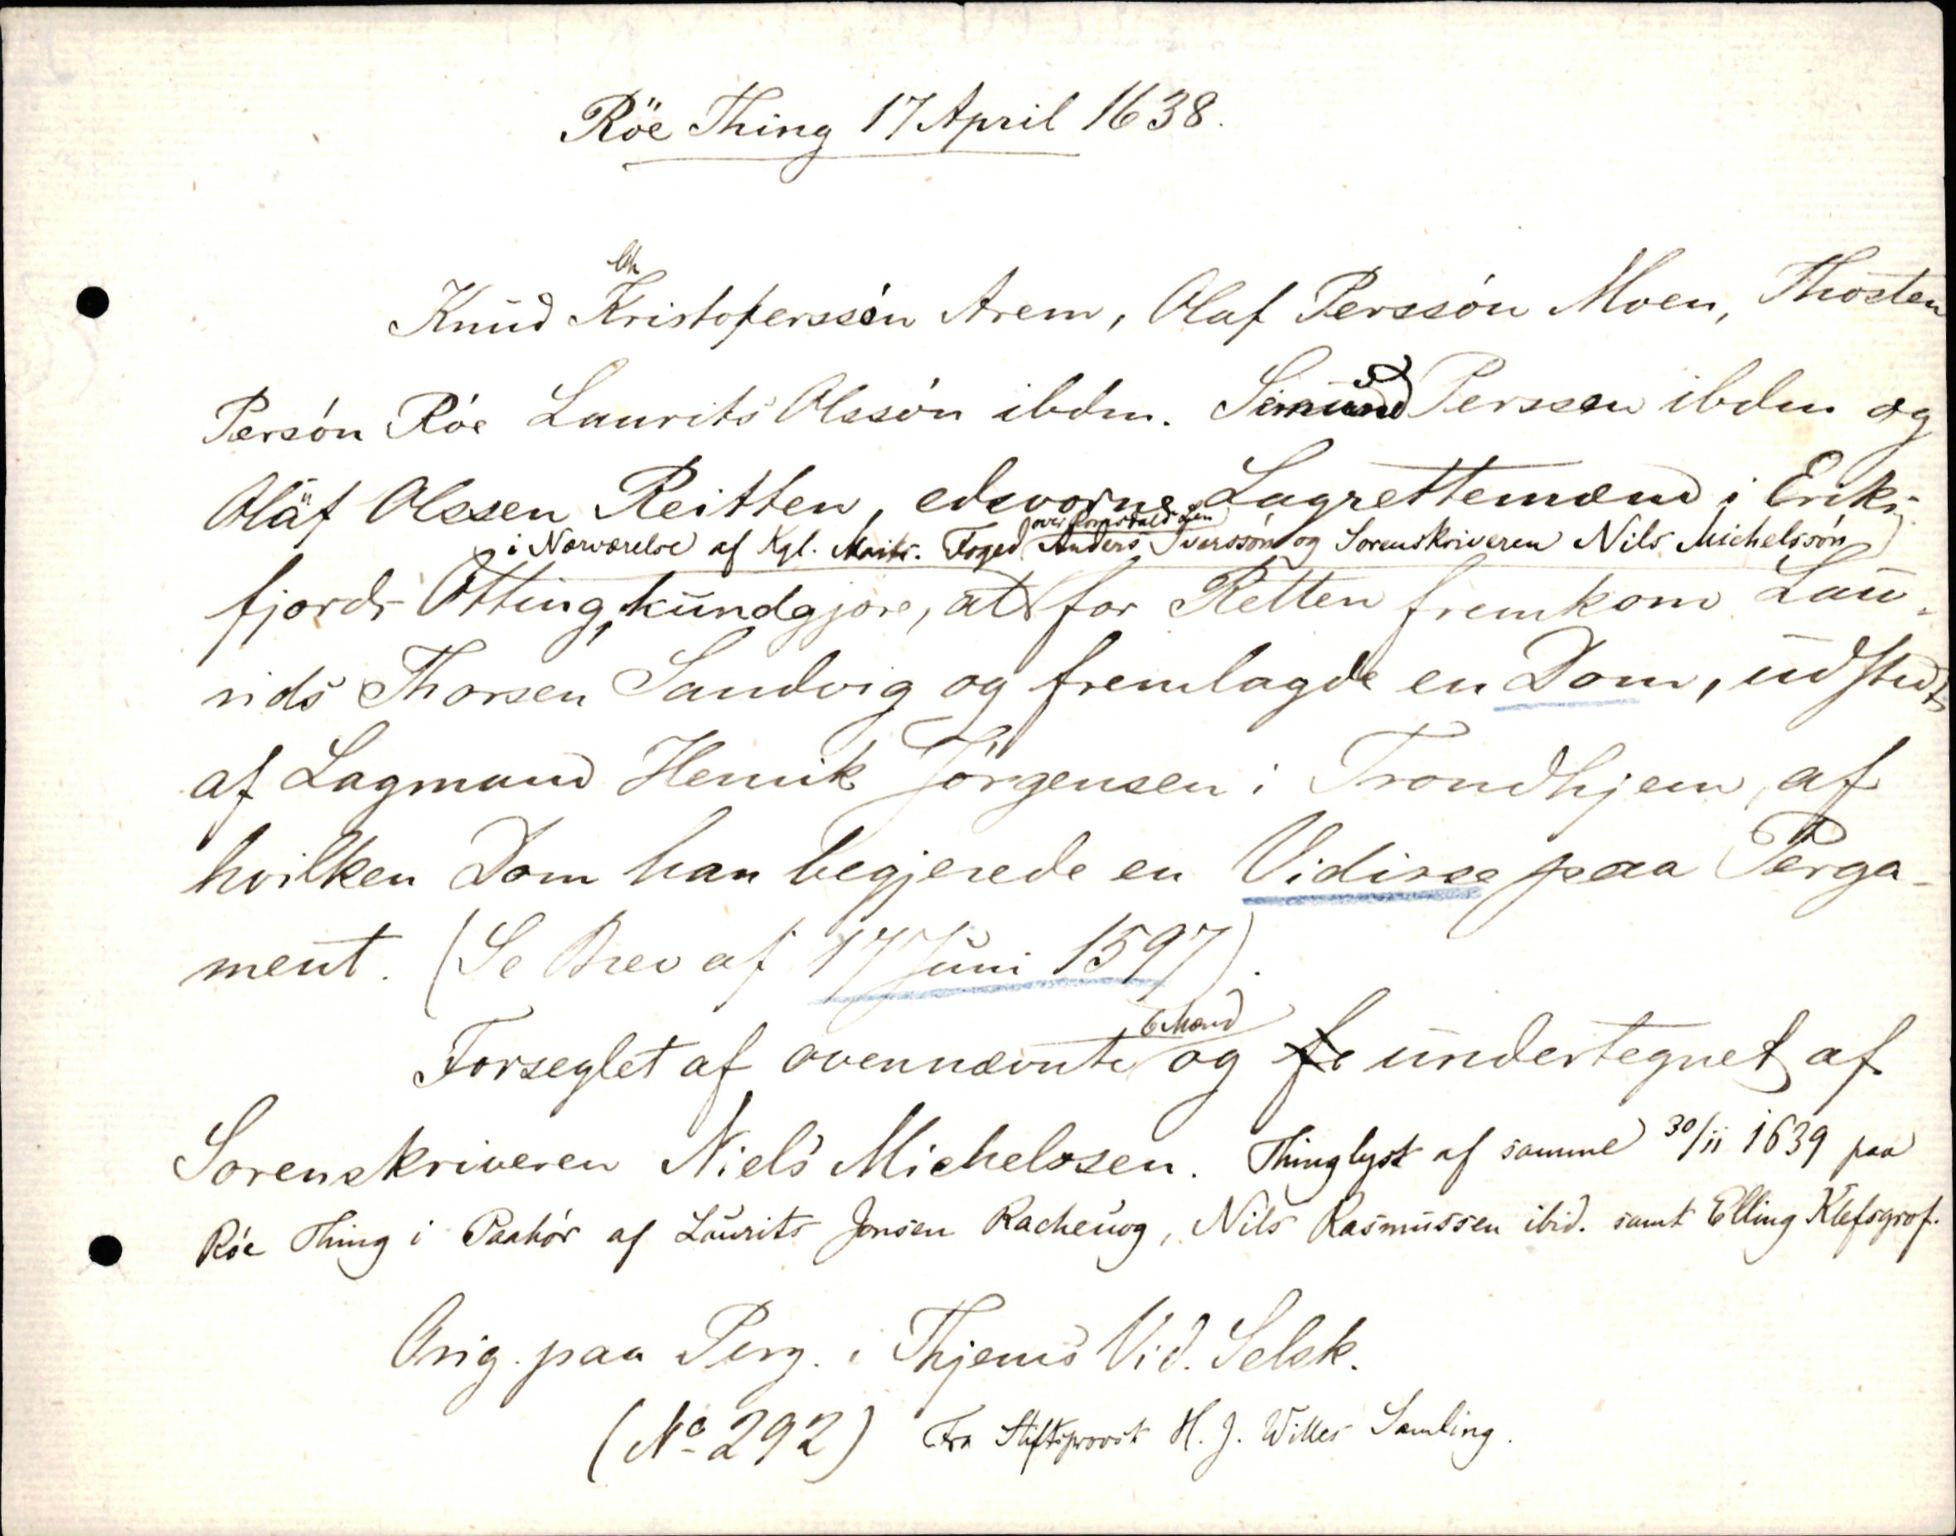 Röe Thing 17 April 1638.
Ch
Knud Kristoferssón Arem, Olaf Perssón Moen, Thosten
Persón Róe Laurits Olssón ibdm. Simund Perssen ibdm og
Olaf Olssen Reitten, edsvorne Lagrettemænd i Eriks-
over Romsdals Len
i Nærværelse af Kgl. Maits. Foged Anders Iverssón og Sorenskriveren Nils Michelssón
fjords Otting, kundgjore, at for Retten fremkom Lau-
rids Thorsen Sandvig og fremlagde en Dom, udstedt
af Lagmand Henrik Jörgensen i Trondhjem, af
hvilken Dom han begjerede en Vidisse paa Perga-
ment. (Se Brev af 17 Juni 1597).
6 Mænd
Forseglet af ovennævnte og fe undertegnet af
Sorenskriveren Niels Michelssen. Thinglyst af samme 30/11 1639 paa
Róe Thing i Paahór af Laurits Jonsen Rachevog, Nils Rasmussen ibid. samt Elling Klefsgrof.
Orig. paa Perg. i Thjems Vid. Selsk.
(No 292) Fra Stiftsprovst H. J. Willes Samling.